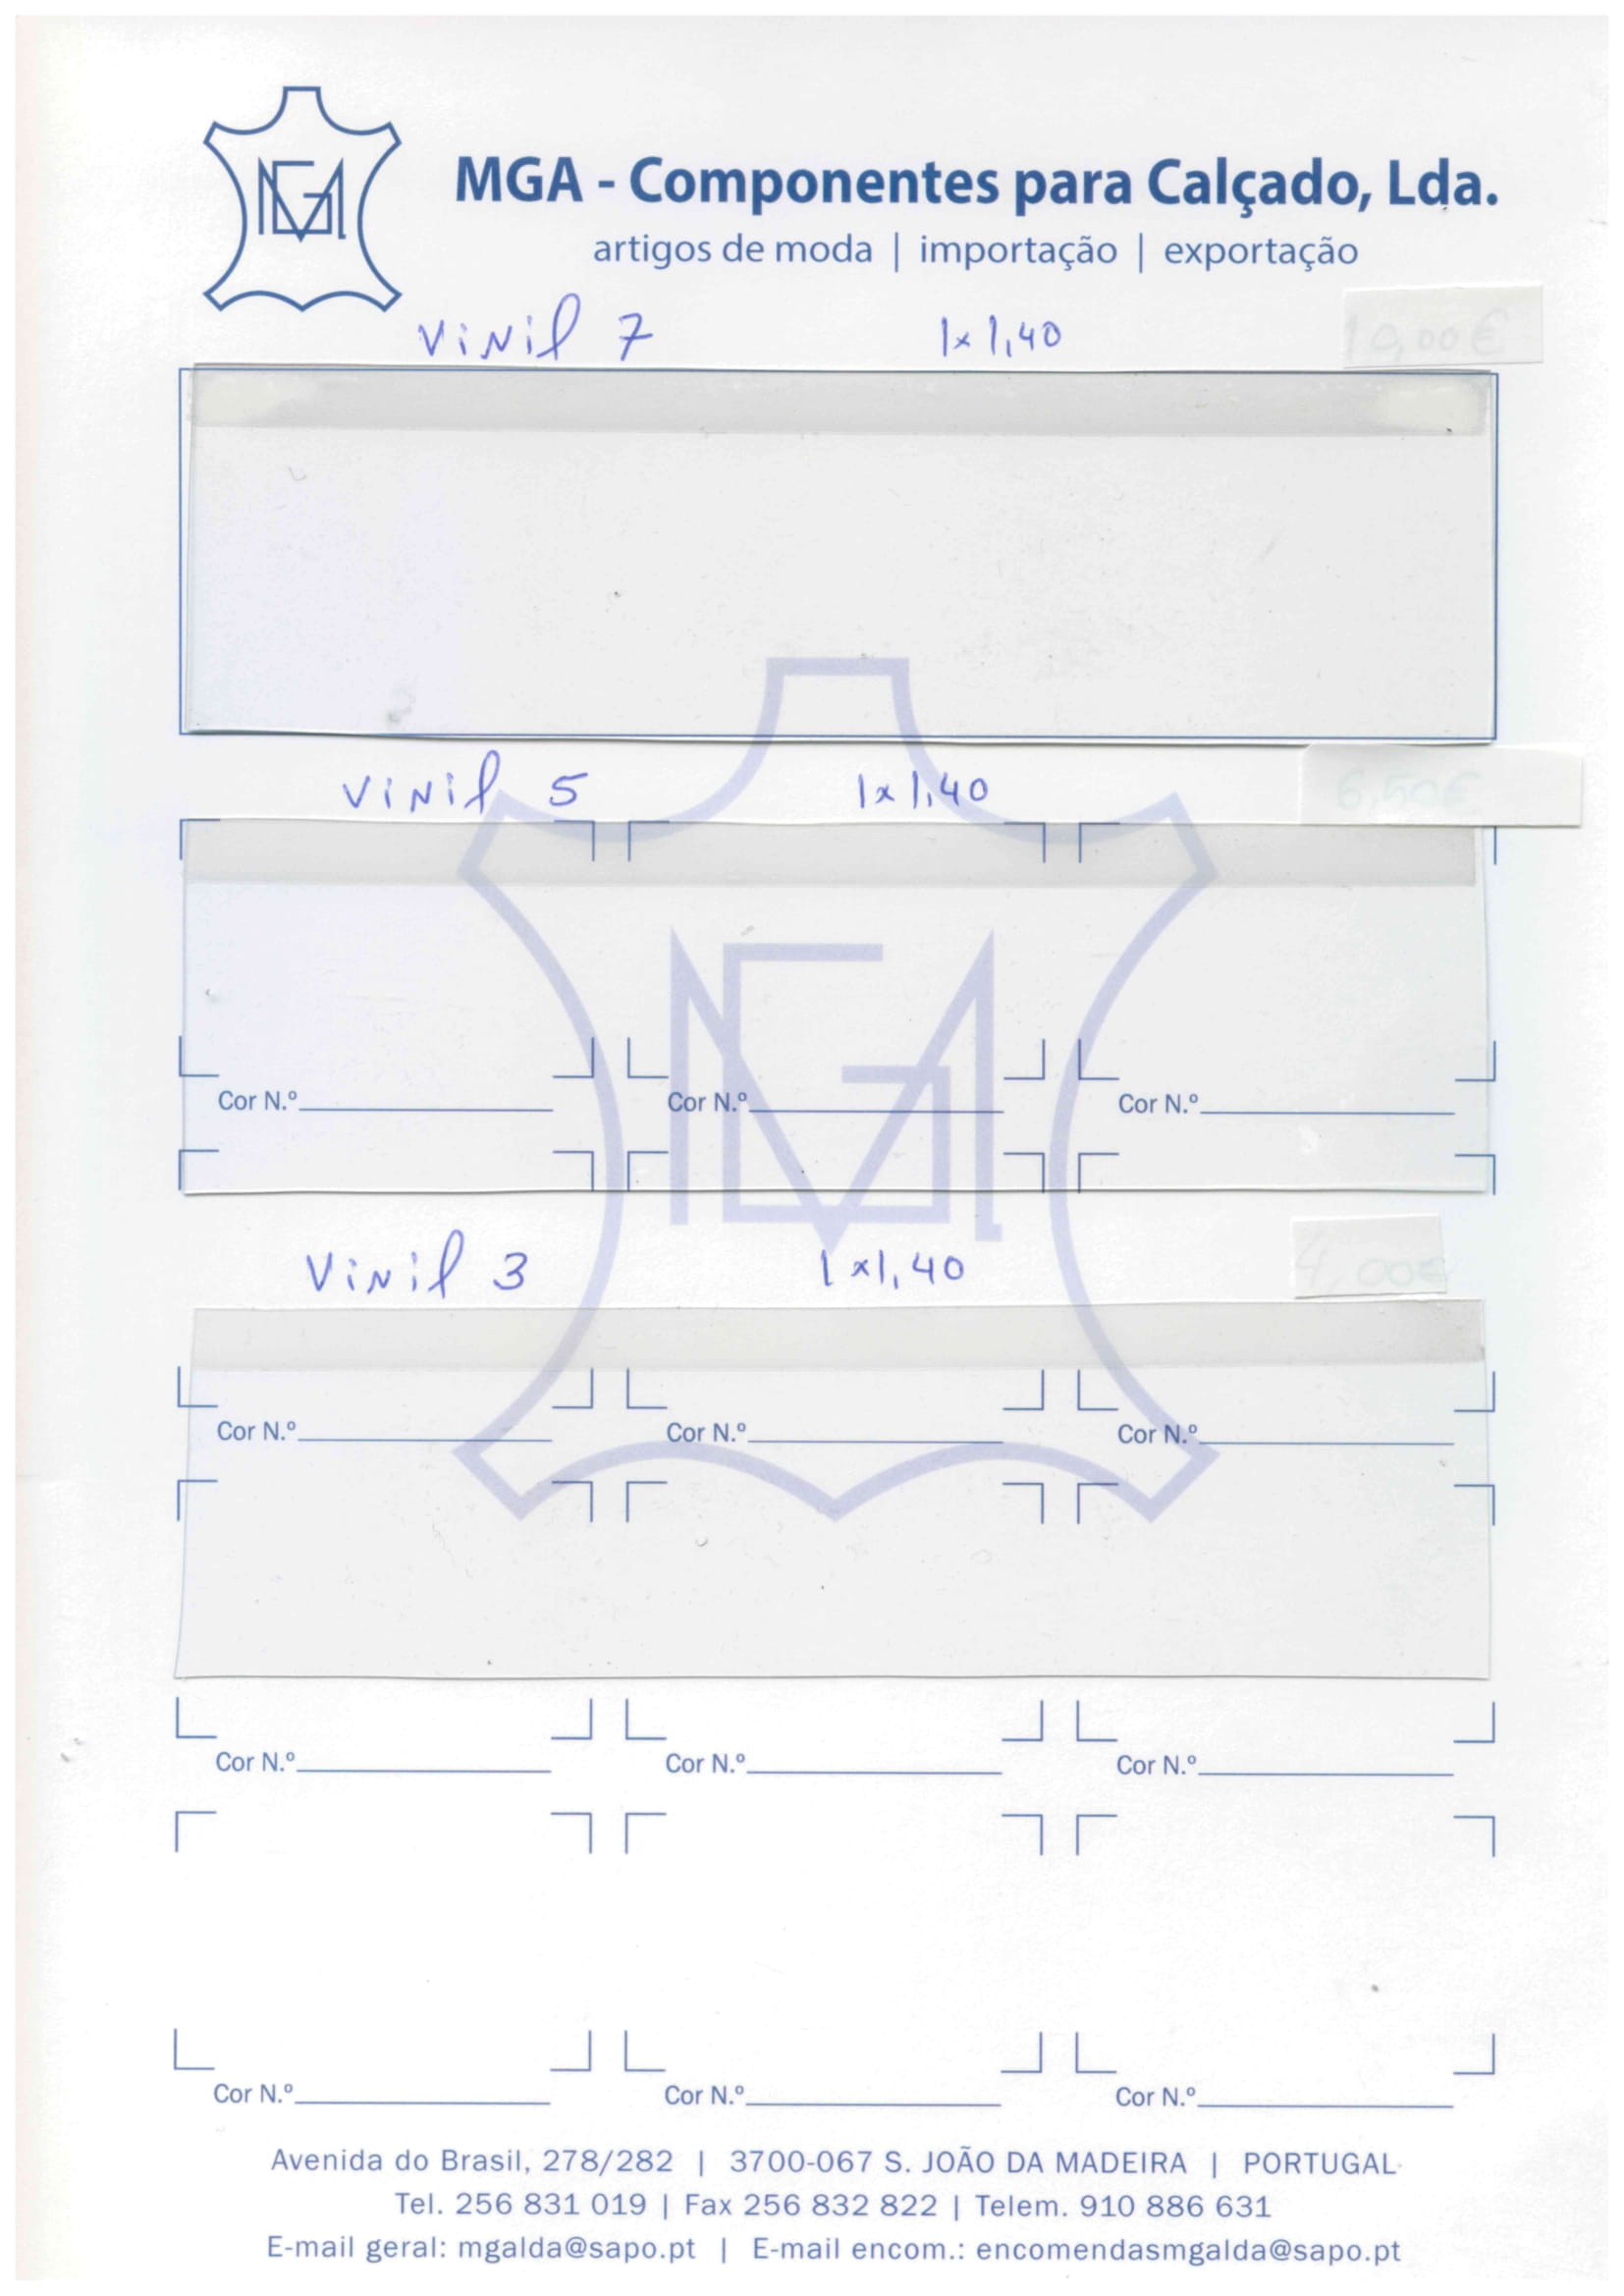 MGA
MGA - Componentes para Calçado, Lda.
artigos de moda | importação | exportação
Vinil 7 1x1,40 10,00€
Vinil 5 1x1,40 6,50€
MGA
Cor N.º Cor N.º Cor N.º
Vinil 3 1x1,40 4,00€
Cor N.º Cor N.º Cor N.º
Cor N.º Cor N.º Cor N.º
Cor N.º Cor N.º Cor N.º
Avenida do Brasil, 278/282 | 3700-067 S. JOÃO DA MADEIRA | PORTUGAL
Tel. 256 831 019 | Fax 256 832 822 | Telem. 910 886 631
E-mail geral: mgalda@sapo.pt | E-mail encom.: encomendasmgalda@sapo.pt